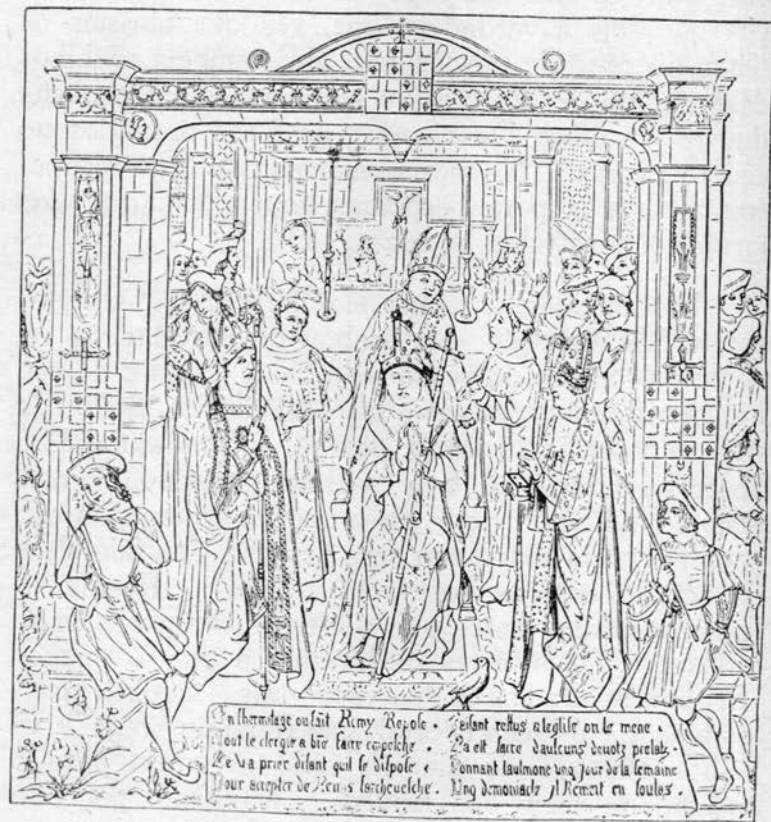 En lhermitage ou sait Rimy Repose .
Tout le clergie a bie faire
Le va prier disant quil se dispose .
Pour accepter de Reins larchevesche .
Faisant reffus a leglise on le mene .
La est sacre daulcuns devotz prelatz .
Donnant laulmone ung Jour de la semaine
Ung demoniacle Jl Rement en soulas .